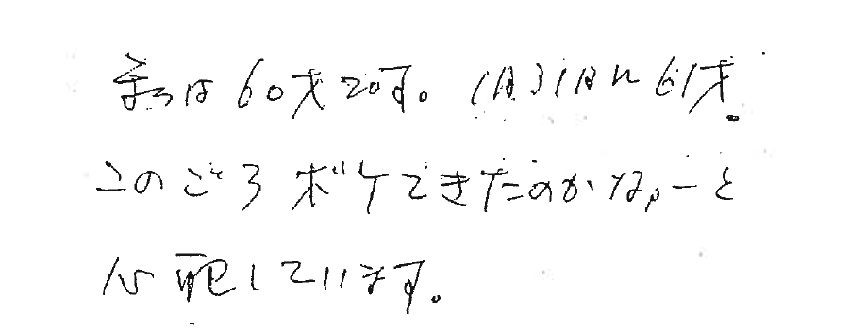 私は60才です。1月31日に61才。
このごろボケてきたのかなーと
心配しています。